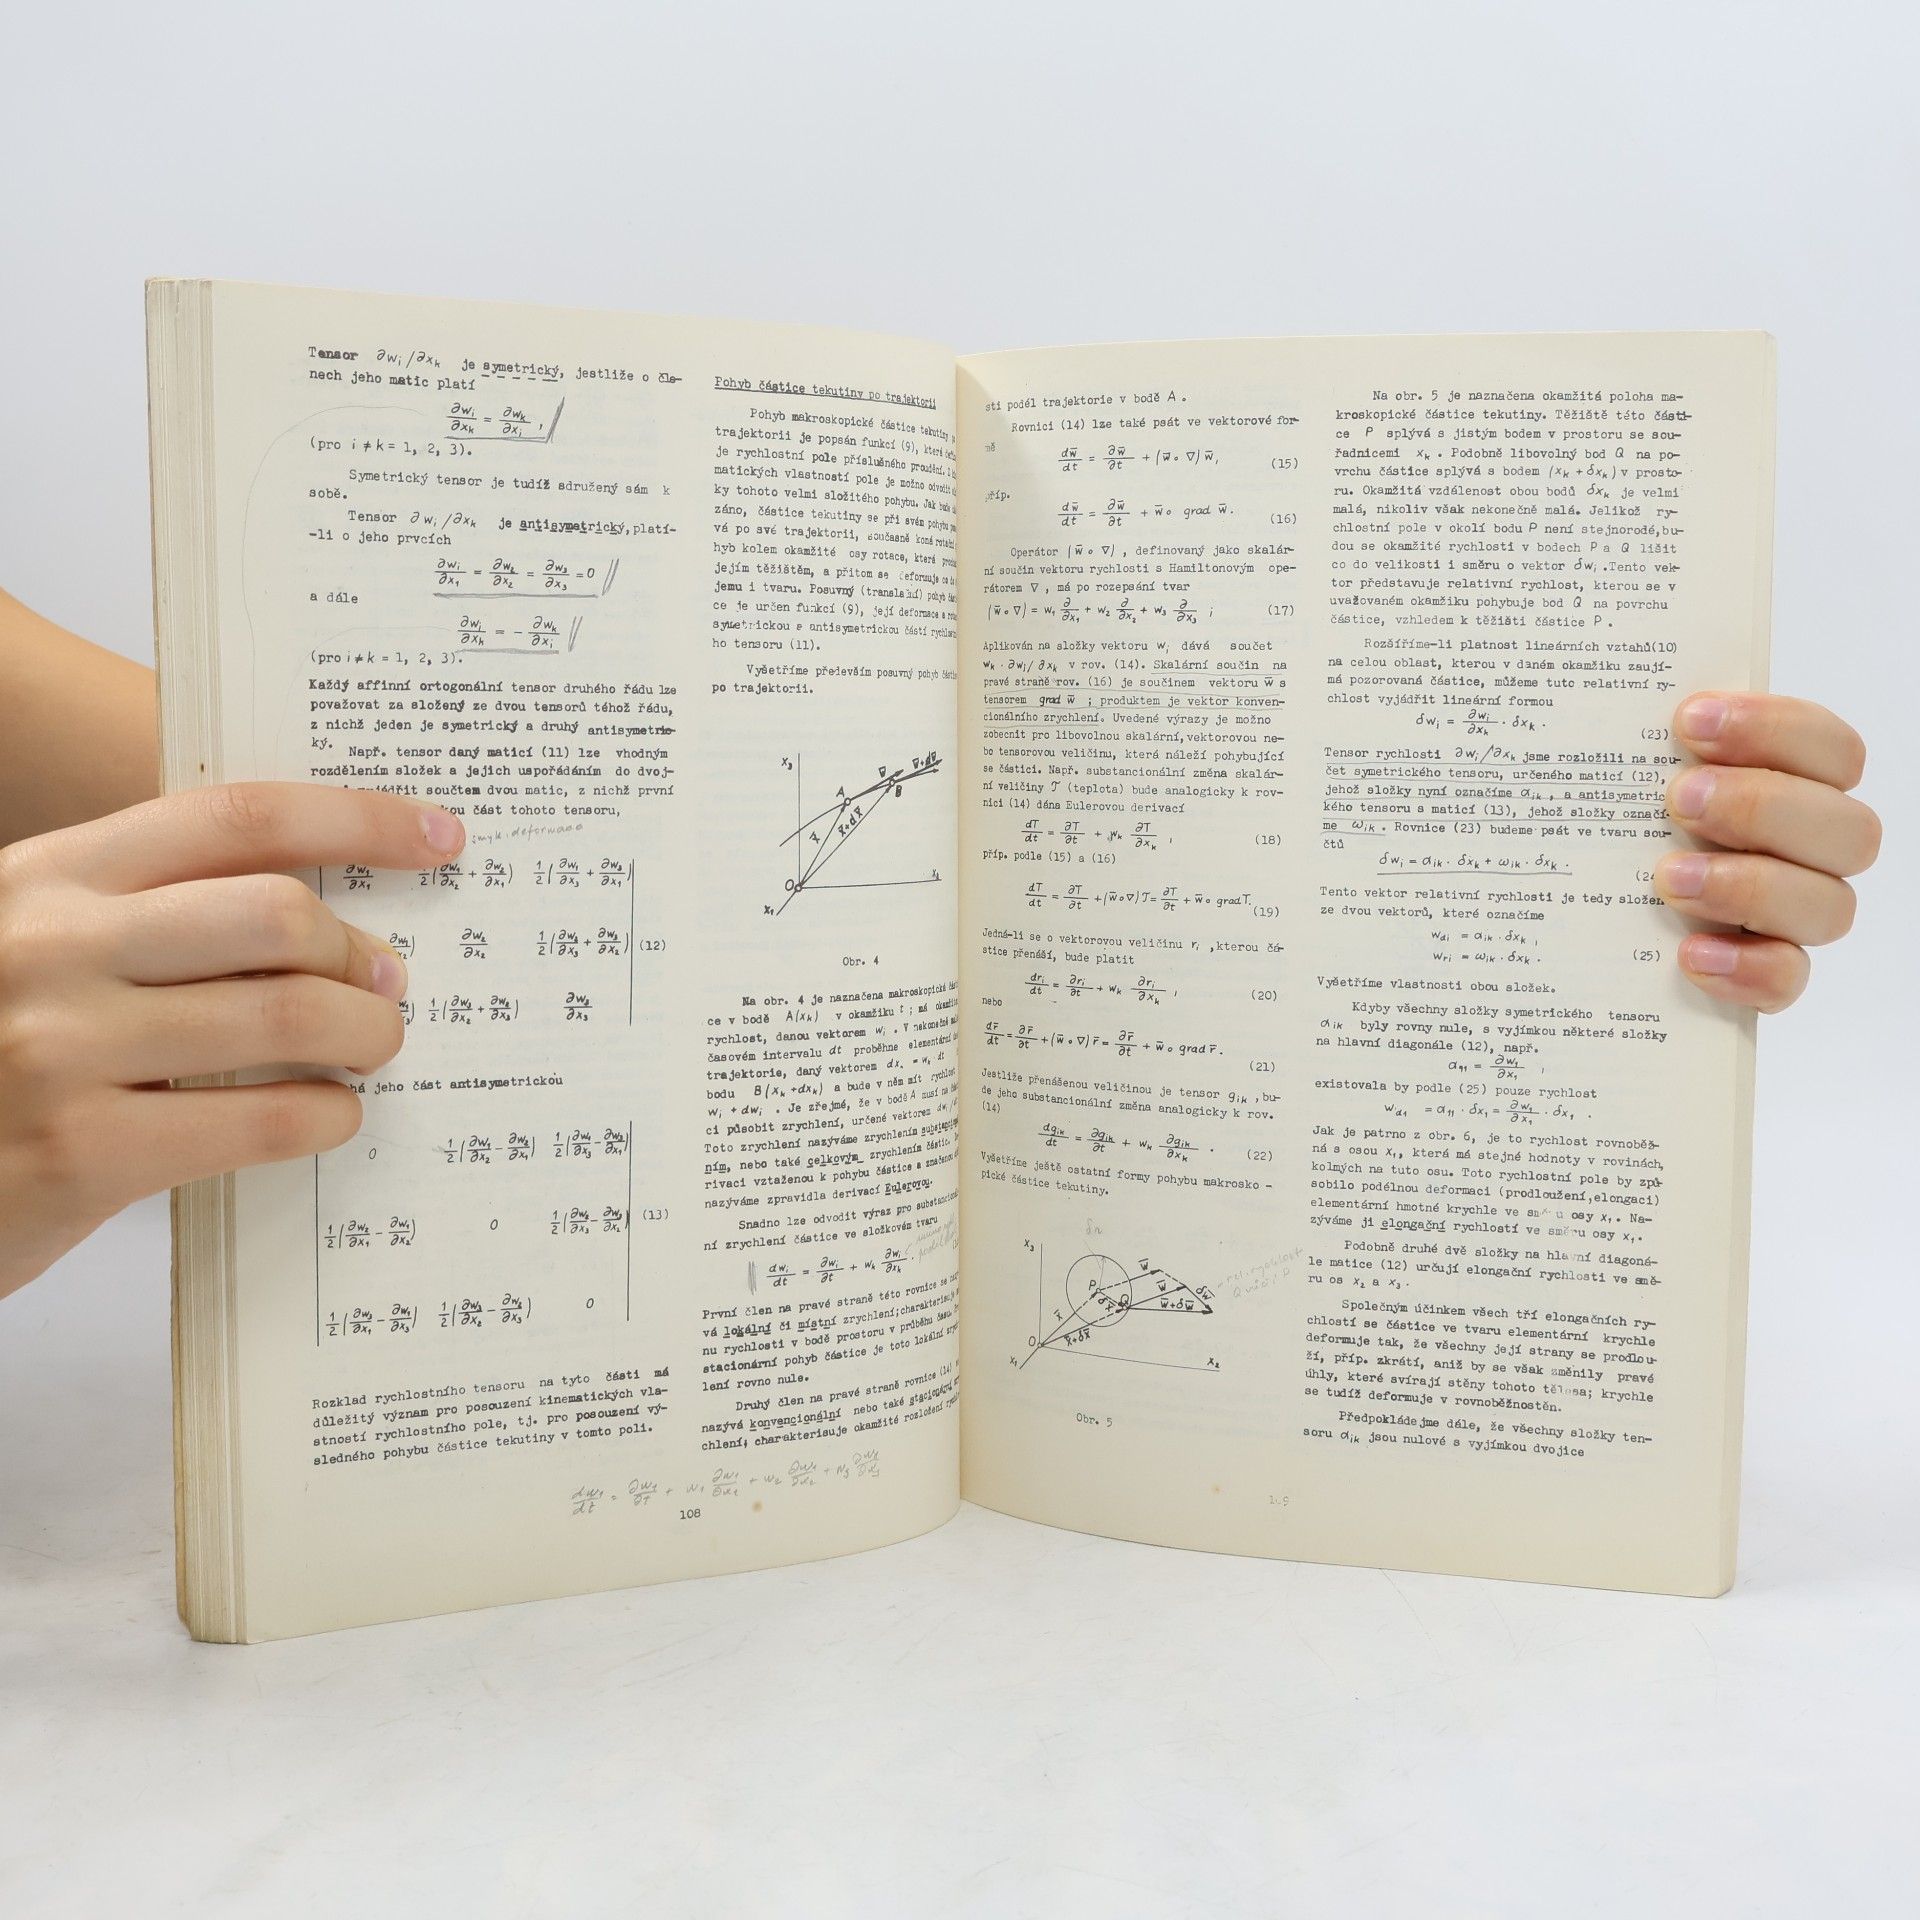 Tensor ∂wᵢ/∂xₖ je symetrický, jestliže o čle-
nech jeho matic platí
∂wᵢ/∂xₖ = ∂wₖ/∂xᵢ ,
(pro i ≠ k = 1, 2, 3).
Symetrický tensor je tudíž sdružený sám k
sobě.
Tensor ∂wᵢ/∂xₖ je antisymetrický, platí-
-li o jeho prvcích
∂wᵢ/∂x₁ = ∂w₂/∂x₂ = ∂w₃/∂x₃ = 0
a dále
∂wᵢ/∂xₖ = - ∂wₖ/∂xᵢ
(pro i ≠ k = 1, 2, 3).
Každý affinní ortogonální tensor druhého řádu lze
považovat za složený ze dvou tensorů téhož řádu,
z nichž jeden je symetrický a druhý antisymetric-
ký.
Např. tensor daný maticí (11) lze vhodným
rozdělením složek a jejich uspořádáním do dvoj-
součtem dvou matic, z nichž první
část tohoto tensoru,
smyk. deformace
∂w₁/∂x₁ ½(∂w₁/∂x₂ + ∂w₂/∂x₁) ½(∂w₁/∂x₃ + ∂w₃/∂x₁)
∂w₂/∂x₂ ½(∂w₂/∂x₃ + ∂w₃/∂x₂) (12)
½(∂w₃/∂x₂ + ∂w₂/∂x₃) ∂w₃/∂x₃
jeho část antisymetrickou
0 ½(∂w₁/∂x₂ - ∂w₂/∂x₁) ½(∂w₁/∂x₃ - ∂w₃/∂x₁)
½(∂w₂/∂x₁ - ∂w₁/∂x₂) 0 ½(∂w₂/∂x₃ - ∂w₃/∂x₂) (13)
½(∂w₃/∂x₁ - ∂w₁/∂x₃) ½(∂w₃/∂x₂ - ∂w₂/∂x₃) 0
Rozklad rychlostního tensoru na tyto části má
důležitý význam pro posouzení kinematických vla-
stností rychlostního pole, tj. pro posouzení vý-
sledného pohybu částice tekutiny v tomto poli.
Pohyb částice tekutiny po trajektorii
Pohyb makroskopické částice tekutiny
trajektorii je popsán funkcí (9), která
je rychlostní pole příslušného proudění.
matických vlastností pole je možno odvodit
ky tohoto velmi složitého pohybu. Jak bude
záno, částice tekutiny se při svém pohybu
vá po své trajektorii, současně koná rotační
hyb kolem okamžité osy rotace, která
jejím těžištěm, a přitom se deformuje
jemu i tvaru. Posuvný (translační) pohyb
ce je určen funkcí (9), její deformace a
symetrickou a antisymetrickou částí
ho tensoru (11).
Vyšetříme především posuvný pohyb
po trajektorii.
x₃ A w̄ w̄+dw̄ B x̄ x̄+dx̄ O x₁ x₂
Obr. 4
Na obr. 4 je naznačena makroskopická
ce v bodě A(xₖ) v okamžiku t ; má
rychlost, danou vektorem wᵢ . V nekonečně
časovém intervalu dt proběhne elementární
trajektorie, daný vektorem dxₖ = wₖ dt
bodu B(xₖ+dxₖ) a bude v něm mít rychlost
wᵢ + dwᵢ . Je zřejmé, že v bodě A musí na
ci působit zrychlení, určené vektorem
Toto zrychlení nazýváme zrychlením
ním, nebo také celkovým zrychlením částic.
rivaci vztaženou k pohybu částice a značenou
nazýváme zpravidla derivací Eulerovou.
Snadno lze odvodit výraz pro
ní zrychlení částice ve složkovém tvaru
dwᵢ/dt = ∂wᵢ/∂t + wₖ ∂wᵢ/∂xₖ .
První člen na pravé straně této rovnice se
vá lokální či místní zrychlení; charakterisuje
nu rychlosti v bodě prostoru v průběhu času.
stacionární pohyb částice je toto lokální
lení rovno nule.
Druhý člen na pravé straně rovnice (14)
nazývá konvencionální nebo také stacionární
chlení; charakterisuje okamžité rozložení
dw₁/dt = ∂w₁/∂t + w₁ ∂w₁/∂x₁ + w₂ ∂w₁/∂x₂ + w₃ ∂w₁/∂x₃
108
sti podél trajektorie v bodě A .
Rovnici (14) lze také psát ve vektorové for-
mě
dw̄/dt = ∂w̄/∂t + (w̄ ∘ ∇) w̄, (15)
příp.
dw̄/dt = ∂w̄/∂t + w̄ ∘ grad w̄. (16)
Operátor (w̄ ∘ ∇) , definovaný jako skalár-
ní součin vektoru rychlosti s Hamiltonovým ope-
rátorem ∇ , má po rozepsání tvar
(w̄ ∘ ∇) = w₁ ∂/∂x₁ + w₂ ∂/∂x₂ + w₃ ∂/∂x₃ ; (17)
Aplikován na složky vektoru wᵢ dává součet
wₖ · ∂wᵢ/∂xₖ v rov. (14). Skalární součin na
pravé straně rov. (16) je součinem vektoru w̄ s
tensorem grad w̄ ; produktem je vektor konven-
cionálního zrychlení. Uvedené výrazy je možno
zobecnit pro libovolnou skalární, vektorovou ne-
bo tensorovou veličinu, která náleží pohybující
se částici. Např. substancionální změna skalár-
ní veličiny T (teplota) bude analogicky k rov-
nici (14) dána Eulerovou derivací
dT/dt = ∂T/∂t + wₖ ∂T/∂xₖ , (18)
příp. podle (15) a (16)
dT/dt = ∂T/∂t + (w̄ ∘ ∇) T = ∂T/∂t + w̄ ∘ grad T. (19)
Jedná-li se o vektorovou veličinu rᵢ , kterou čá-
stice přenáší, bude platit
drᵢ/dt = ∂rᵢ/∂t + wₖ ∂rᵢ/∂xₖ , (20)
nebo
dr̄/dt = ∂r̄/∂t + (w̄ ∘ ∇) r̄ = ∂r̄/∂t + w̄ ∘ grad r̄. (21)
Jestliže přenášenou veličinou je tensor gᵢₖ , bu-
de jeho substancionální změna analogicky k rov.
(14)
dgᵢₖ/dt = ∂gᵢₖ/∂t + wₖ ∂gᵢₖ/∂xₖ . (22)
Vyšetříme ještě ostatní formy pohybu makrosko -
pické částice tekutiny.
δn
x₃ P w̄ w̄ δw̄ δx̄ Q w̄+δw̄ x̄ x̄+δx̄ O x₁ x₂
rel. rychlost
Q vůči P
Obr. 5
Na obr. 5 je naznačena okamžitá poloha ma-
kroskopické částice tekutiny. Těžiště této části-
ce P splývá s jistým bodem v prostoru se sou-
řadnicemi xₖ . Podobně libovolný bod Q na po-
vrchu částice splývá s bodem (xₖ + δxₖ) v prosto-
ru. Okamžitá vzdálenost obou bodů δxₖ je velmi
malá, nikoliv však nekonečně malá. Jelikož ry-
chlostní pole v okolí bodu P není stejnorodé, bu-
dou se okamžité rychlosti v bodech P a Q lišit
co do velikosti i směru o vektor δwᵢ . Tento vek-
tor představuje relativní rychlost, kterou se v
uvažovaném okamžiku pohybuje bod Q na povrchu
částice, vzhledem k těžišti částice P .
Rozšíříme-li platnost lineárních vztahů(10)
na celou oblast, kterou v daném okamžiku zaují-
má pozorovaná částice, můžeme tuto relativní ry-
chlost vyjádřit lineární formou
δwᵢ = ∂wᵢ/∂xₖ · δxₖ . (23)
Tensor rychlosti ∂wᵢ/∂xₖ jsme rozložili na sou-
čet symetrického tensoru, určeného maticí (12),
jehož složky nyní označíme αᵢₖ , a antisymetric
kého tensoru s maticí (13), jehož složky označí-
me ωᵢₖ . Rovnice (23) budeme psát ve tvaru sou-
čtů
δwᵢ = αᵢₖ · δxₖ + ωᵢₖ · δxₖ .
Tento vektor relativní rychlosti je tedy složen
ze dvou vektorů, které označíme
w_αi = αᵢₖ · δxₖ ,
w_ri = ωᵢₖ · δxₖ . (25)
Vyšetříme vlastnosti obou složek.
Kdyby všechny složky symetrického tensoru
αᵢₖ byly rovny nule, s vyjímkou některé složky
na hlavní diagonále (12), např.
α₁₁ = ∂w₁/∂x₁ ,
existovala by podle (25) pouze rychlost
w_α1 = α₁₁ · δx₁ = ∂w₁/∂x₁ · δx₁ .
Jak je patrno z obr. 6, je to rychlost rovnoběž-
ná s osou x₁, která má stejné hodnoty v rovinách,
kolmých na tuto osu. Toto rychlostní pole by způ-
sobilo podélnou deformaci (prodloužení, elongaci)
elementární hmotné krychle ve směru osy x₁. Na-
zýváme ji elongační rychlostí ve směru osy x₁.
Podobně druhé dvě složky na hlavní diagoná-
le matice (12) určují elongační rychlosti ve smě-
ru os x₂ a x₃ .
Společným účinkem všech tří elongačních ry-
chlostí se částice ve tvaru elementární krychle
deformuje tak, že všechny její strany se prodlou-
ží, příp. zkrátí, aniž by se však změnily pravé
úhly, které svírají stěny tohoto tělesa; krychle
se tudíž deformuje v rovnoběžnostěn.
Předpokládejme dále, že všechny složky ten-
soru αᵢₖ jsou nulové s vyjímkou dvojice